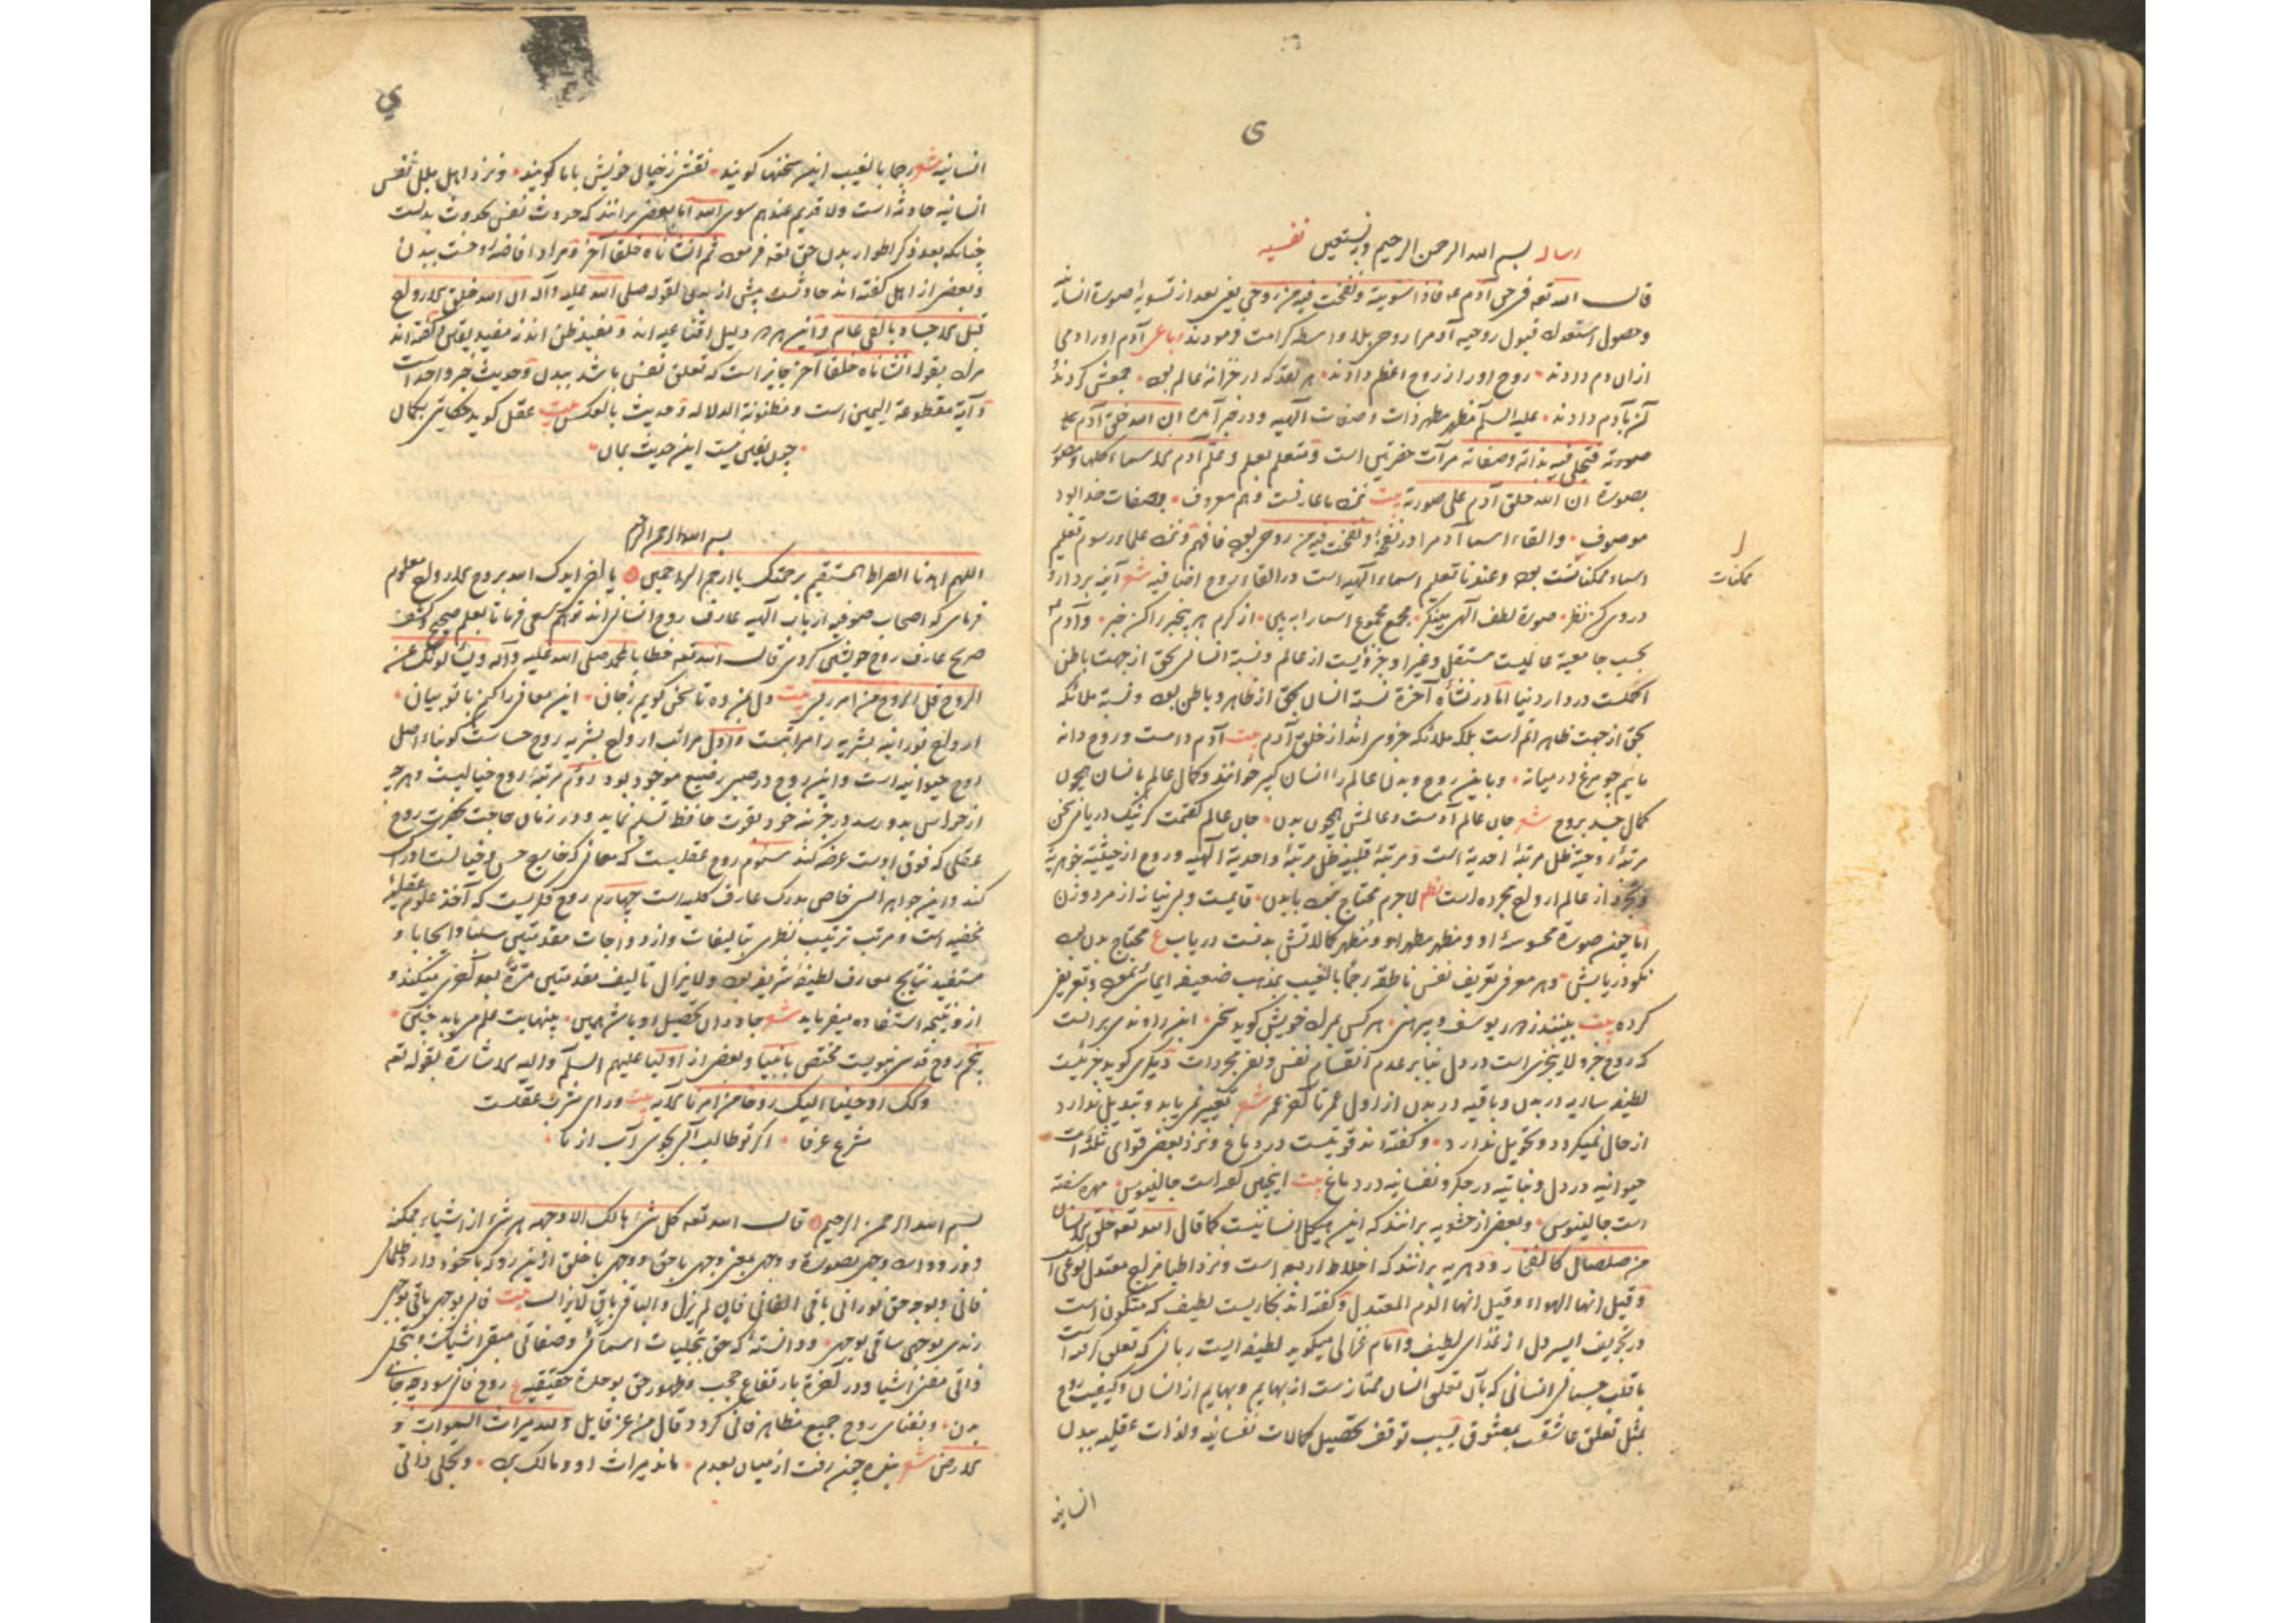 ی
رساله بسم الله الرحمن الرحیم وبه نستعین نفسیه
قال الله تعه فی حق آدم عم فاذا سویته ونفخت فیه من روحی یعنی بعد از تسویهٔ صورة انسانیه
وحصول استعداد قبول روحیه آدم را روحی بلا واسطه کرامت فرمودند رباعی آدم اورا دمی
ازان دم دادند روح اورا از روح اعظم دادند هر نقد که در خزانهٔ عالم بود جمعش کردند
آن بآدم دادند علیه السلم مظهر ذات وصفات آلهیه ودر خبر آمده ان الله خلق آدم علی
صورته فتجلی فیه بذاته وصفاته مرآت حضرتین است ومتعلم بعلم وعلم آدم الاسماء کلها ومصور
بصورة ان الله خلق آدم علی صورته بیت عارفست وهم معروف بصفات خدا بود
موصوف والقاء اسما آدم را در نفخهٔ ونفخت فیه من روحی بود فافهم ونزد علماء رسوم تعلیم
اسماء ممکنات بود وعندنا تعلیم اسماء آلهیه است در القاء روح اضافیه شعر آینه بردار و
ممکنات
در وی کن نظر صورة لطف آلهی مینگر مجمع مجموع اسما را ببین از کرم هر بیخبر را کن خبر وآدم
بحسب جامعیة عالمیست مستقل وغیر او جزؤیست از عالم ونسبة انسان بحق از جهت باطن
اکملست در دار دنیا اما در نشأه آخرة نسبة انسان بحق از ظاهر وباطن بود ونسبة ملائکه
بحق از جهت ظاهر اتم است بلکه ملائکه جزوی اند از خلق آدم بیت آدم دامست وروح دانه
مائیم چو مرغ در میانه وباین روح وبدن عالم را انسان کبیر خوانند وکمال عالم بانسان همچون
کمال جسد بروح شعر جان عالم آدمست وعالمش همچون بدن جان عالم گفتمت گر نیک دریابی سخن
مرتبهٔ روحیة ظل مرتبهٔ احدیة است ومرتبهٔ قلبیه ظل مرتبهٔ واحدیة آلهیه وروح از حیثیة جوهریة
وتجرد از عالم ارواح مجرده است نظم لاجرم محتاج نبود بابدن قایمست وبی نیاز از مرد وزن
اما چون صورة محسوسهٔ او ومظهر مظهر او ومظهر کمالاتش بدنست دریاب ع محتاج بدن بود
نکو دریابش وهر معرفی تعریف نفس ناطقه رجما بالغیب بمذهب ضعیفه ایمائی نمود وتعریفی
کرده بیت بینند ز هر یوسف وپیرهنی هر کس بمدرک خویش گوید سخنی ابن راوندی برانست
که روح جزو لایتجزی است در دل بنابر عدم انقسام نفس ونفی مجردات دیگری گوید جزئیست
لطیف ساریه در بدن وباقیه در بدن از اول عمر تا آخر عمر شعر تغییر نمی یابد وتبدیل ندارد
از حال نمیگردد وتحویل ندارد وگفته اند قوتیست در دماغ ونزد بعضی قوای ثلثه است
حیوانیه در دل ونباتیه در جگر ونفسانیه در دماغ بیت اینچنین گفته است جالینوس مهره سفته
است جالینوس وبعضی از حشویه برانند که این هیکل انسانیست کما قال الله تعه خلق الانسان
من صلصال کالفخار ودهریه برانند که اخلاط اربعه است ونزد اطبا مزاج معتدل نوعی است
وقیل انها الهواء وقیل انها الدم المعتدل وگفته اند بخاریست لطیف که متکون است
در تجویف ایسر دل از غذای لطیف وامام غزالی میگوید لطیفه ایست ربانی که تعلق گرفته است
با قلب جسمانی انسانی که بآن تعلق انسان ممتازست از بهایم وبهایم از انسان وکیفیت روح
بمثل تعلق عاشقست بمعشوق بسبب توقف تحصیل کمالات نفسانیه ولذات عقلیه ببدن
انسانیه
ي
انسانیه شعر رجما بالغیب این سخنها گویند نقشی ز خیال خویش باما گویند ونزد اهل ملل نفس
انسانیه حادثه است ولا قدیم عندهم سوی الله اما بعضی برانند که حدوث نفس بحدوث بدنست
چنانکه بعد ذکر اطوار بدن حق تعه فرموده ثم انشأناه خلقا آخر ومراد افاضهٔ روحست ببدن
وبعضی از اهل گفته اند حادثست پیش از بدن لقوله صلی الله علیه وآله ان الله خلق الارواح
قبل الاجساد بالفی عام واین هر دو دلیل اقناعیه اند ومفید ظن اند نه مفید یقین وگفته اند
مراد بقوله انشأناه خلقا آخر جایز است که تعلق نفس باشد ببدن وحدیث خبر واحد است
وآیة مقطوعة المتن است ومظنونة الدلاله وحدیث بالعکس بیت عقل گوید حکایتی بگمان
چون یقین نیست این حدیث بمان
بسم الله الرحمن الرحیم
اللهم اهدنا الصراط المستقیم برحمتک یا ارحم الراحمین یا اخی ایدک الله بروح الارواح معلوم
فرمای که اصحاب صوفیه ارباب آلهیه عارف روح انسانی اند توهم سعی فرما تا بعلم صحیح وکشف
صریح عارف روح خویشتن گردی قال الله تعه خطابا لمحمد صلی الله علیه وآله ویسألونک عن
الروح قل الروح من امر ربی بیت دل بمن ده تا سخن گویم ز جان این معانی را کنم باتو بیان
ارواح نورانیه بشریه را مراتبست واول مراتب ارواح بشریه روح حساست که منشاء اصل
روح حیوانیه است واین روح در صبی رضیع موجود بود دوم مرتبهٔ روح خیالیست وهرچه
از حواس بدو رسد در خزینهٔ خود بقوت حافظه تسلیم نماید ودر زمان حاجت بحضرت روح
عقلی که فوق اوست عرضه کند سیوم روح عقلیست که معانی که خارج حس وخیالست ادراک
کند واین جوهر انسی خاص مدرک معارف کلیه است چهارم روح فکریست که آخذ علوم عقلیهٔ
محضیه است ومرتب ترتیب نظری بتالیفات وازدواجات مقدمتین سلبا وایجابا و
مستفید نتایج معارف لطیفهٔ شریفه بود ولا یزال تالیف مقدمتین مرة بعد اخری میکند و
از و نتیجه استفاده میفرماید شعر جاودان تحصیل او باشد همین بینهایت علم می یابد چنین
پنجم روح قدسی نبویست مختص بانبیا وبعضی از اولیا علیهم السلم والیه الاشارة بقوله تعه
وکذلک اوحینا الیک روحا من امرنا الآیه بیت ورای مشرب عقلست
مشرع عرفا اگر تو طالب آبی بجوی آب از ما
بسم الله الرحمن الرحیم قال الله تعه کل شیء هالک الا وجهه هر شیء از اشیاء ممکنه
وجهی بصورة ووجهی بمعنی وجهی باحق ووجهی باخلق ازین رو که باخود دارد ظلمانی
فانی وبوجه حق نورانی باقی الفانی فان لم یزل والباقی باق لا یزال بیت فانی بوجهی باقی بوجهی
رندی بوجهی ساقی بوجهی ودانسته که حق بتجلیات اسمائی وصفاتی مبقی اشیاست وبتجلی
ذاتی مفنی اشیا ودر آخرة بارتفاع حجب وظهور حق بوحدة حقیقیه ع روح فانی شود چه جای
بدن وبفنای روح جمیع مظاهر فانی گردد قال من عز قایل ولله میراث السموات و
الارض شعر بنده چون رفت از میان بعدم ماند میراث او ومالک وی وتجلی ذاتی